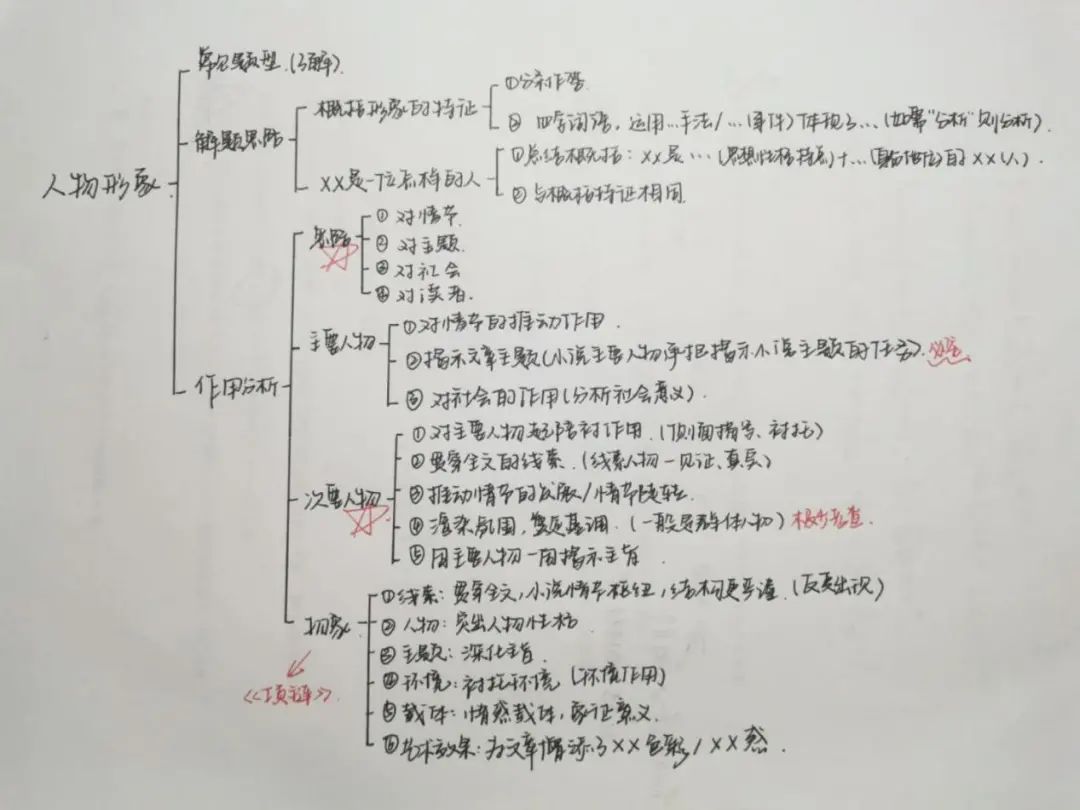 人物形象
常见题型(了解).
解题思路
概括形象的特征
①分条作答
② 四字词语，运用…手法/…(事件)体现了…(如需“分析”则分析).
XX是一位怎样的人
①总结概括：XX是…(思想性格特点)+…(身份地位)的XX(人).
②与概括特征相同.
作用分析
思路
①对情节
②对主题.
③对社会
④对读者.
主要人物
①对情节的推动作用.
②揭示文章主题(小说主要人物承担揭示小说主题的任务).
③对社会的作用(分析社会意义).
次要人物
①对主要人物起陪衬作用.(侧面描写、衬托)
②贯穿全文的线索.(线索人物—见证、真实)
③推动情节的发展/情节陡转.
④渲染氛围，奠定基调.(一般是群体人物)极少考查.
⑤同主要人物一同揭示主旨.
物象
《项链》
①线索：贯穿全文，小说情节枢纽，结构更严谨.(反复出现)
②人物：突出人物性格.
③主题：深化主旨.
④环境：衬托环境(环境作用)
⑤载体：情感载体，象征意义.
⑥艺术效果：为文章增添了XX色彩/XX感.